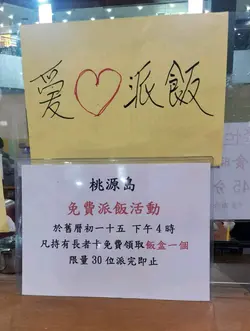 愛♡派飯
桃源島
免費派飯活動
於舊曆初一十五 下午4時
凡持有長者卡免費領取飯盒一個
限量 30 位派完即止